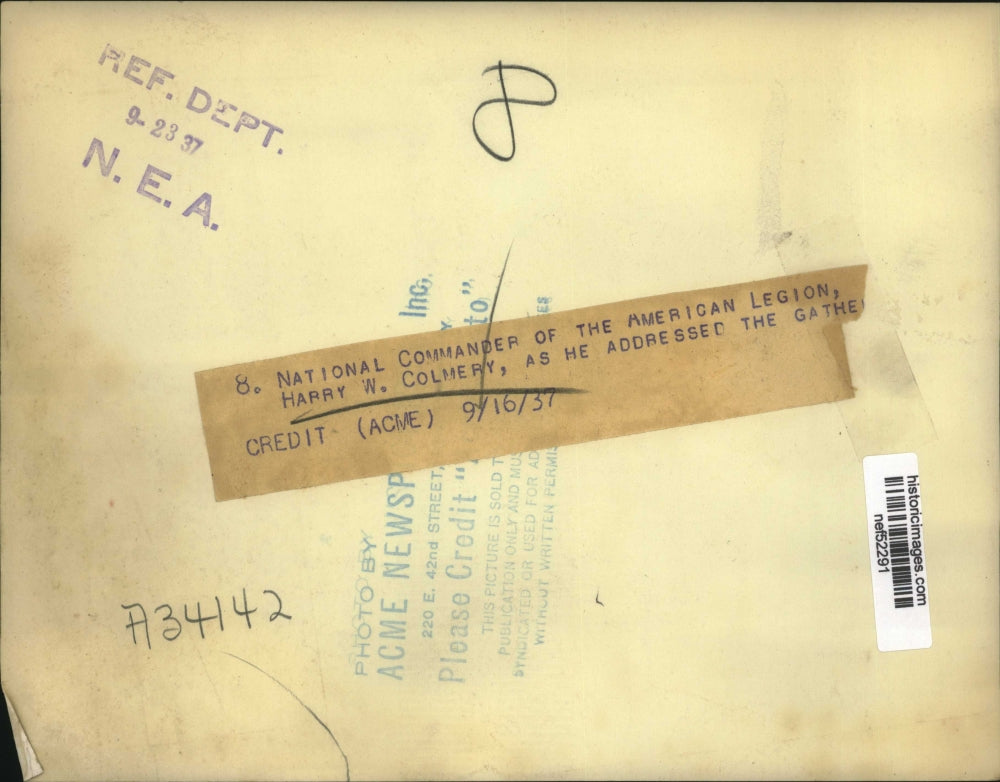 REF. DEPT.
9-23 37
N. E. A.
8
8. NATIONAL COMMANDER OF THE AMERICAN LEGION,
HARRY W. COLMERY, AS HE ADDRESSED THE GATHE
CREDIT (ACME) 9/16/37
PHOTO BY
ACME NEWSP Inc.
220 E. 42nd STREET,
Please Credit " to"
THIS PICTURE IS SOLD
PUBLICATION ONLY AND MUS
SYNDICATED OR USED FOR AD
WITHOUT WRITTEN PERMIS
A34142
historicimages.com
nef52291